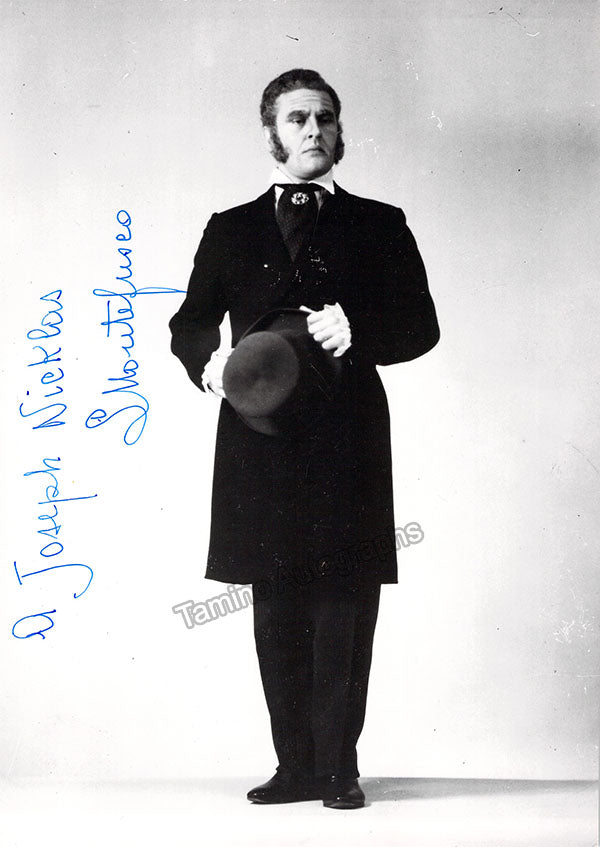 A Joseph Nicklas
Montefusco
Tamino Autographs